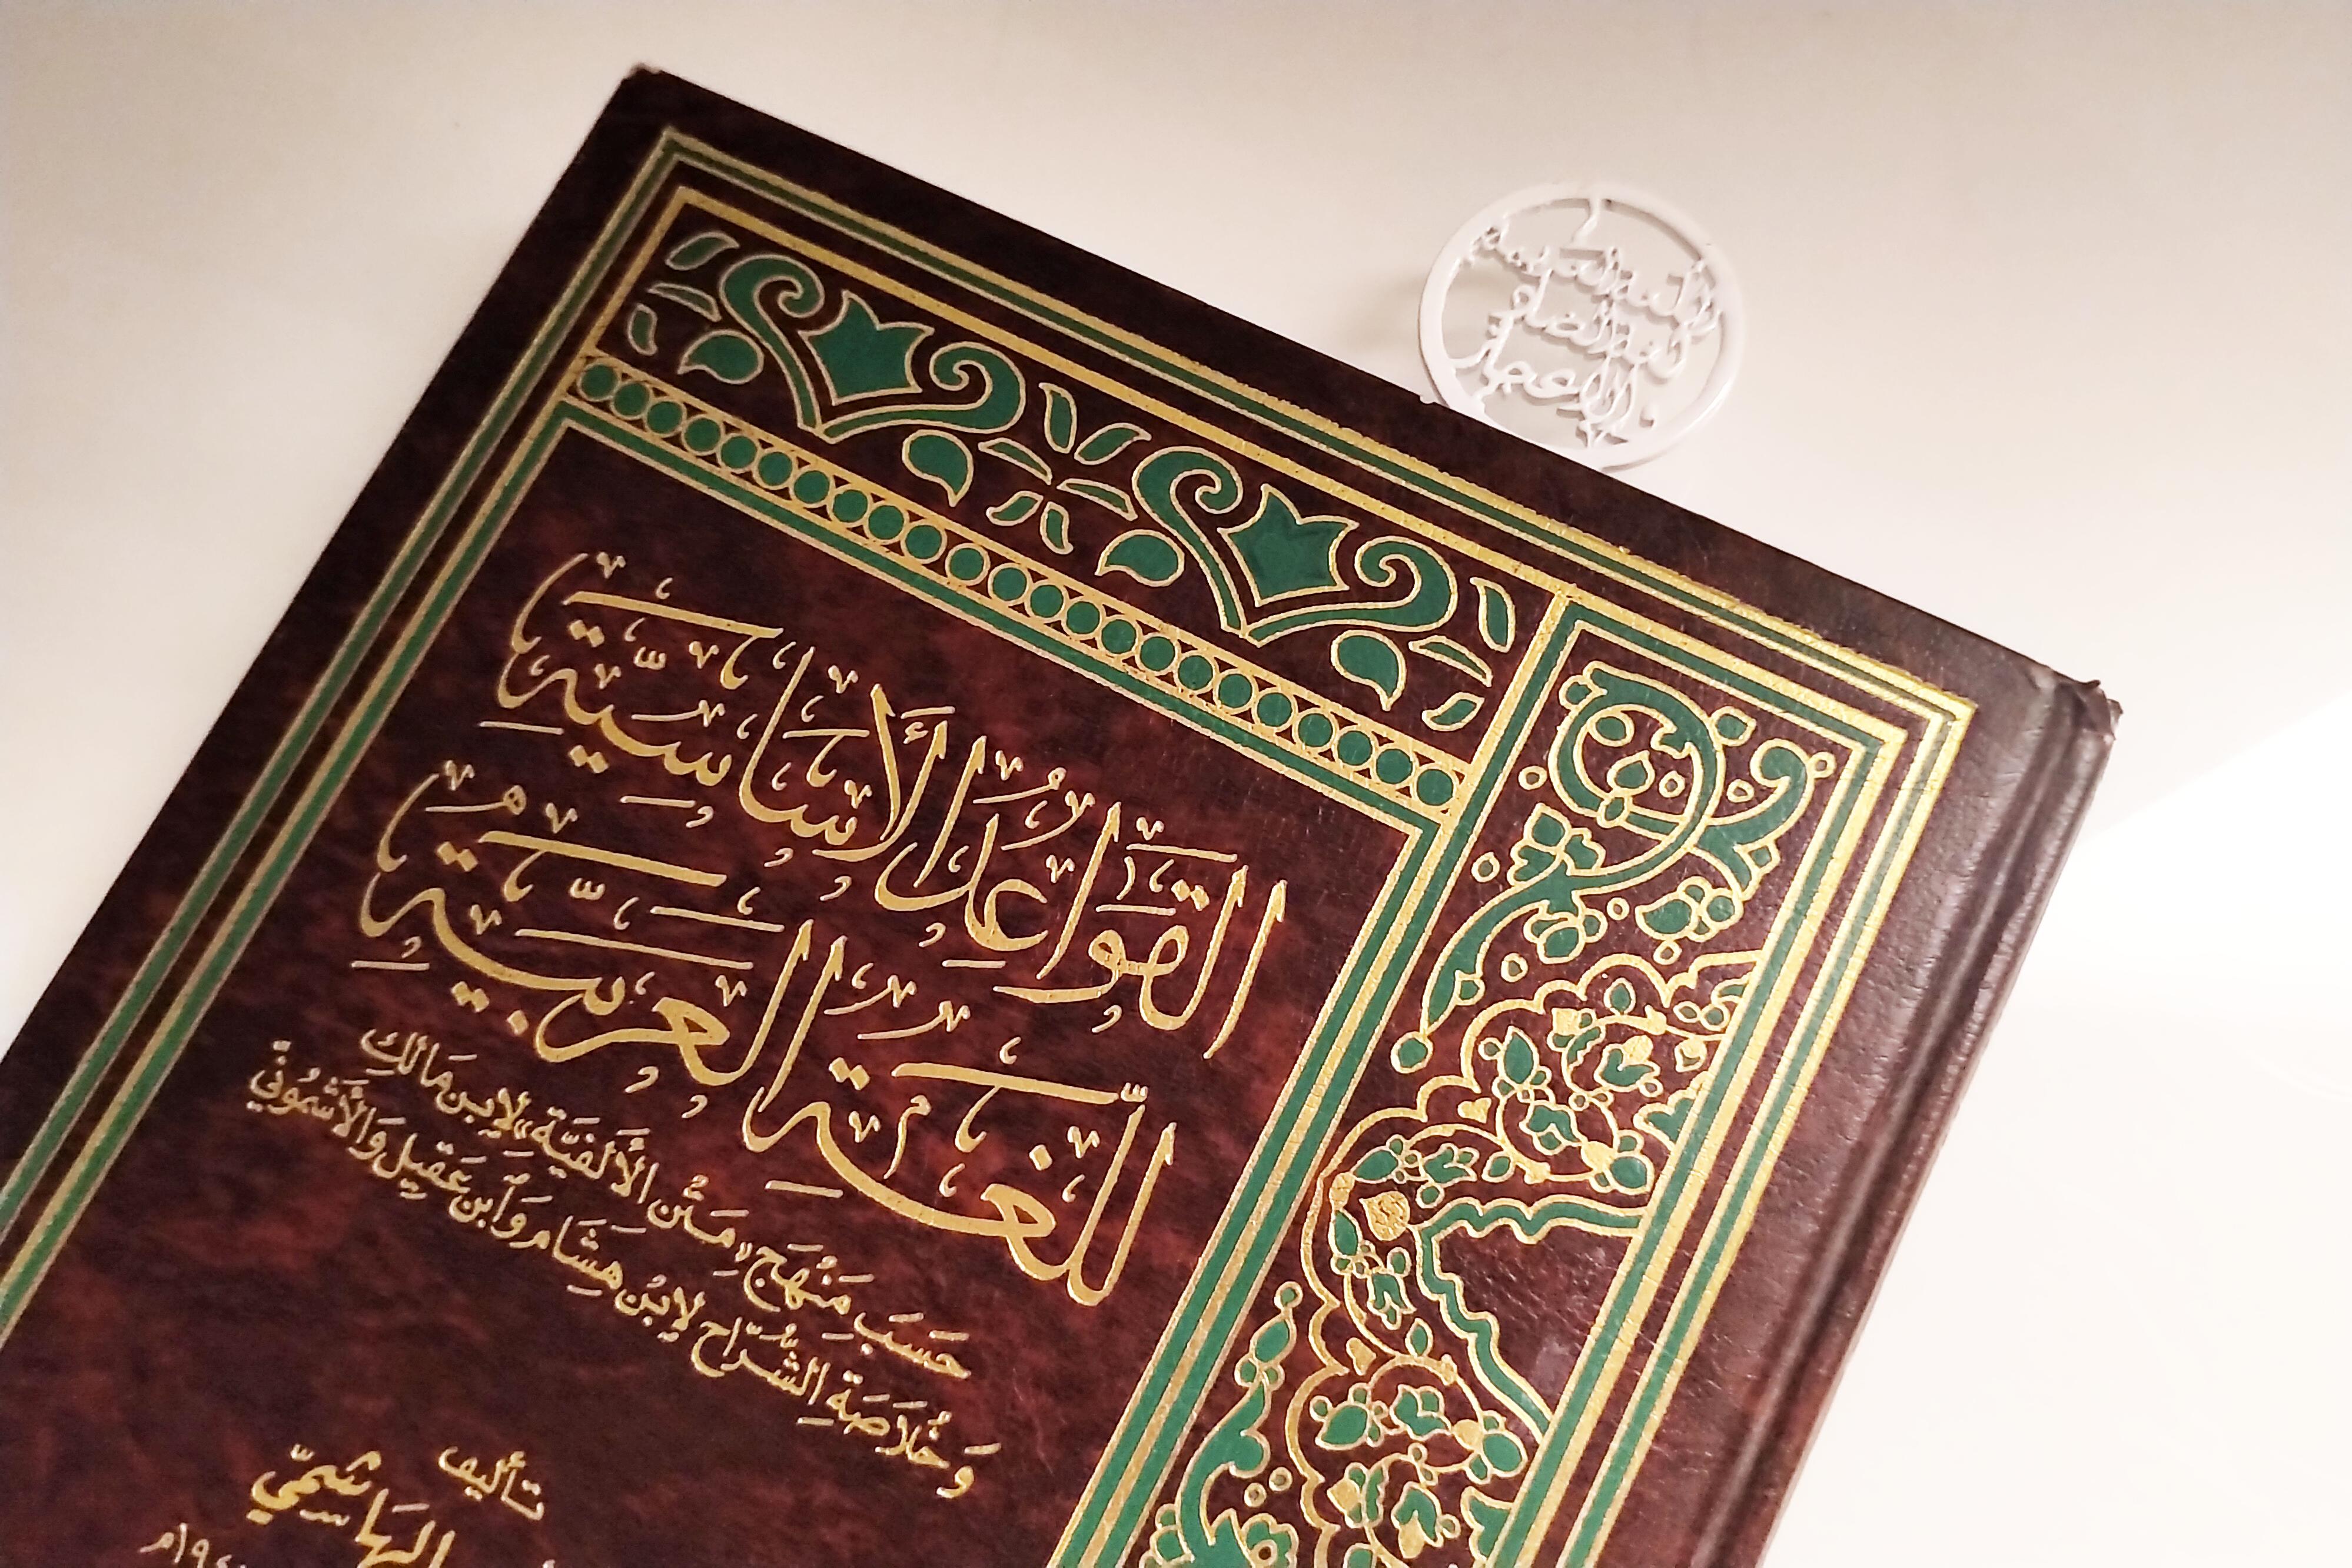 القَوَاعِدُ الأَسَاسِيَّةِ
لِلُّغَةِ العَرَبِيَّةِ
حَسَبَ مَنْهَجِ «مَتْنِ الأَلْفِيَّةِ» لِابْنِ مَالِكٍ
وَخُلَاصَةِ الشُّرَّاحِ لِابْنِ هِشَامٍ وَابْنِ عَقِيلٍ وَالأَشْمُونِيِّ
تأليف
الهَاشِمِيّ